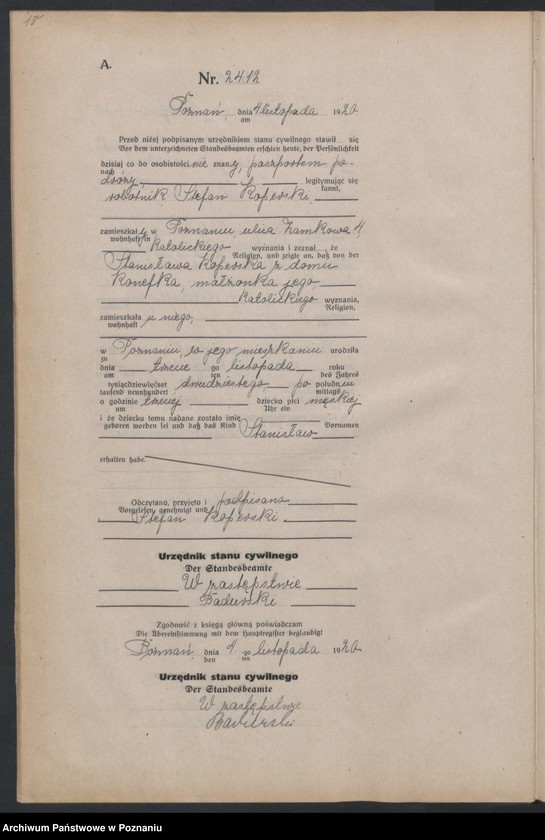 18
A.
Nr. 2412
Poznań, dnia 4 listopada 1920
am
Przed niżej podpisanym urzędnikiem stanu cywilnego stawił się
Vor dem unterzeichneten Standesbeamten erschien heute, der Persönlichkeit
dzisiaj co do osobistości nie znany, paszportem po-
nach
dróży legitymując się
kannt,
robotnik Stefan Koperski,
zamieszkały w Poznaniu, ulica Zamkowa 4,
wohnhaft in
katolickiego wyznania i zeznał, że
Religion, und zeigte an, daß von der
Stanisława Koperska z domu
Konefka, małżonka jego,
katolickiego wyznania,
Religion,
zamieszkała u niego,
wohnhaft
w Poznaniu, w jego mieszkaniu urodziła
zu
dnia trzeciego listopada roku
am ten des Jahres
tysiącdziewięćset dwudziestego po południu
tausend neunhundert mittags
o godzinie trzeciej dziecko płci męskiej
um Uhr ein
i że dziecku temu nadane zostało imię
geboren worden sei und daß das Kind Vornamen
Stanisław
erhalten habe.
Odczytano, przyjęto i podpisano
Vorgelesen, genehmigt und
Stefan Koperski
Urzędnik stanu cywilnego
Der Standesbeamte
W zastępstwie
Badurski
Zgodność z księgą główną poświadczam
Die Übereinstimmung mit dem Hauptregister beglaubigt
Poznań, dnia 4 go listopada 1920
den ten
Urzędnik stanu cywilnego
Der Standesbeamte
W zastępstwie
Badurski
Archiwum Państwowe w Poznaniu